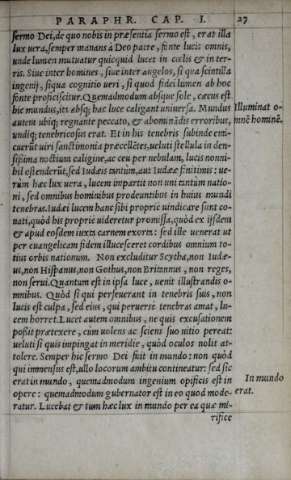 PARAPHR. CAP. I. 27
sermo Dei, de quo nobis in præsentia sermo est, erat illa
lux uera, semper manans à Deo patre, fonte lucis omnis,
unde lumen mutuatur quicquid lucet in cœlis & in ter-
ris. Siue inter homines, siue inter angelos, si qua scintilla
ingenij, siqua cognitio ueri, si quod fidei lumen ab hoc
fonte proficiscitur. Quemadmodum absque sole, cæcus est
hic mundus, ita absq; hac luce caligant uniuersa. Mundus
autem ubiq; regnante peccato, & abominādis erroribus,
undiq; tenebricosus erat. Et in his tenebris subinde emi-
cuerūt uiri sanctimonia præcellētes, ueluti stellula in den-
sissima noctium caligine, ac ceu per nebulam, lucis nonni-
hil ostenderūt, sed Iudæis tantum, aut Iudææ finitimis: ue-
rum hæc lux uera, lucem impartit non uni tantum natio-
ni, sed omnibus hominibus prodeuntibus in huius mundi
tenebras. Iudæi lucem hanc sibi proprie uindicare sunt co-
nati, quòd his proprie uideretur promissa, quòd ex ijsdem
& apud eosdem iuxta carnem exorta: sed ille uenerat ut
per euangelicam fidem illucesceret cordibus omnium to-
tius orbis nationum. Non excluditur Scytha, non Iudæ-
us, non Hispanus, non Gothus, non Britannus, non reges,
non serui. Quantum est in ipsa luce, uenit illustrandis o-
mnibus. Quòd si qui perseuerant in tenebris suis, non
lucis est culpa, sed eius, qui peruerse tenebras amat, lu-
cem horret. Lucet autem omnibus, ne quis excusationem
possit prætexere, cum uolens ac sciens suo uitio pereat:
ueluti si quis impingat in meridie, quòd oculos nolit at-
tolere. Semper hic sermo Dei fuit in mundo: non quòd
qui immensus est, ullo locorum ambitu contineatur: sed sic
erat in mundo, quemadmodum ingenium opificis est in
opere: quemadmodum gubernator est in eo quod mode-
ratur. Lucebat & tum hæc lux in mundo per ea quæ mi-
rifice
Illuminat o-
mnē hominē.
In mundo
erat.